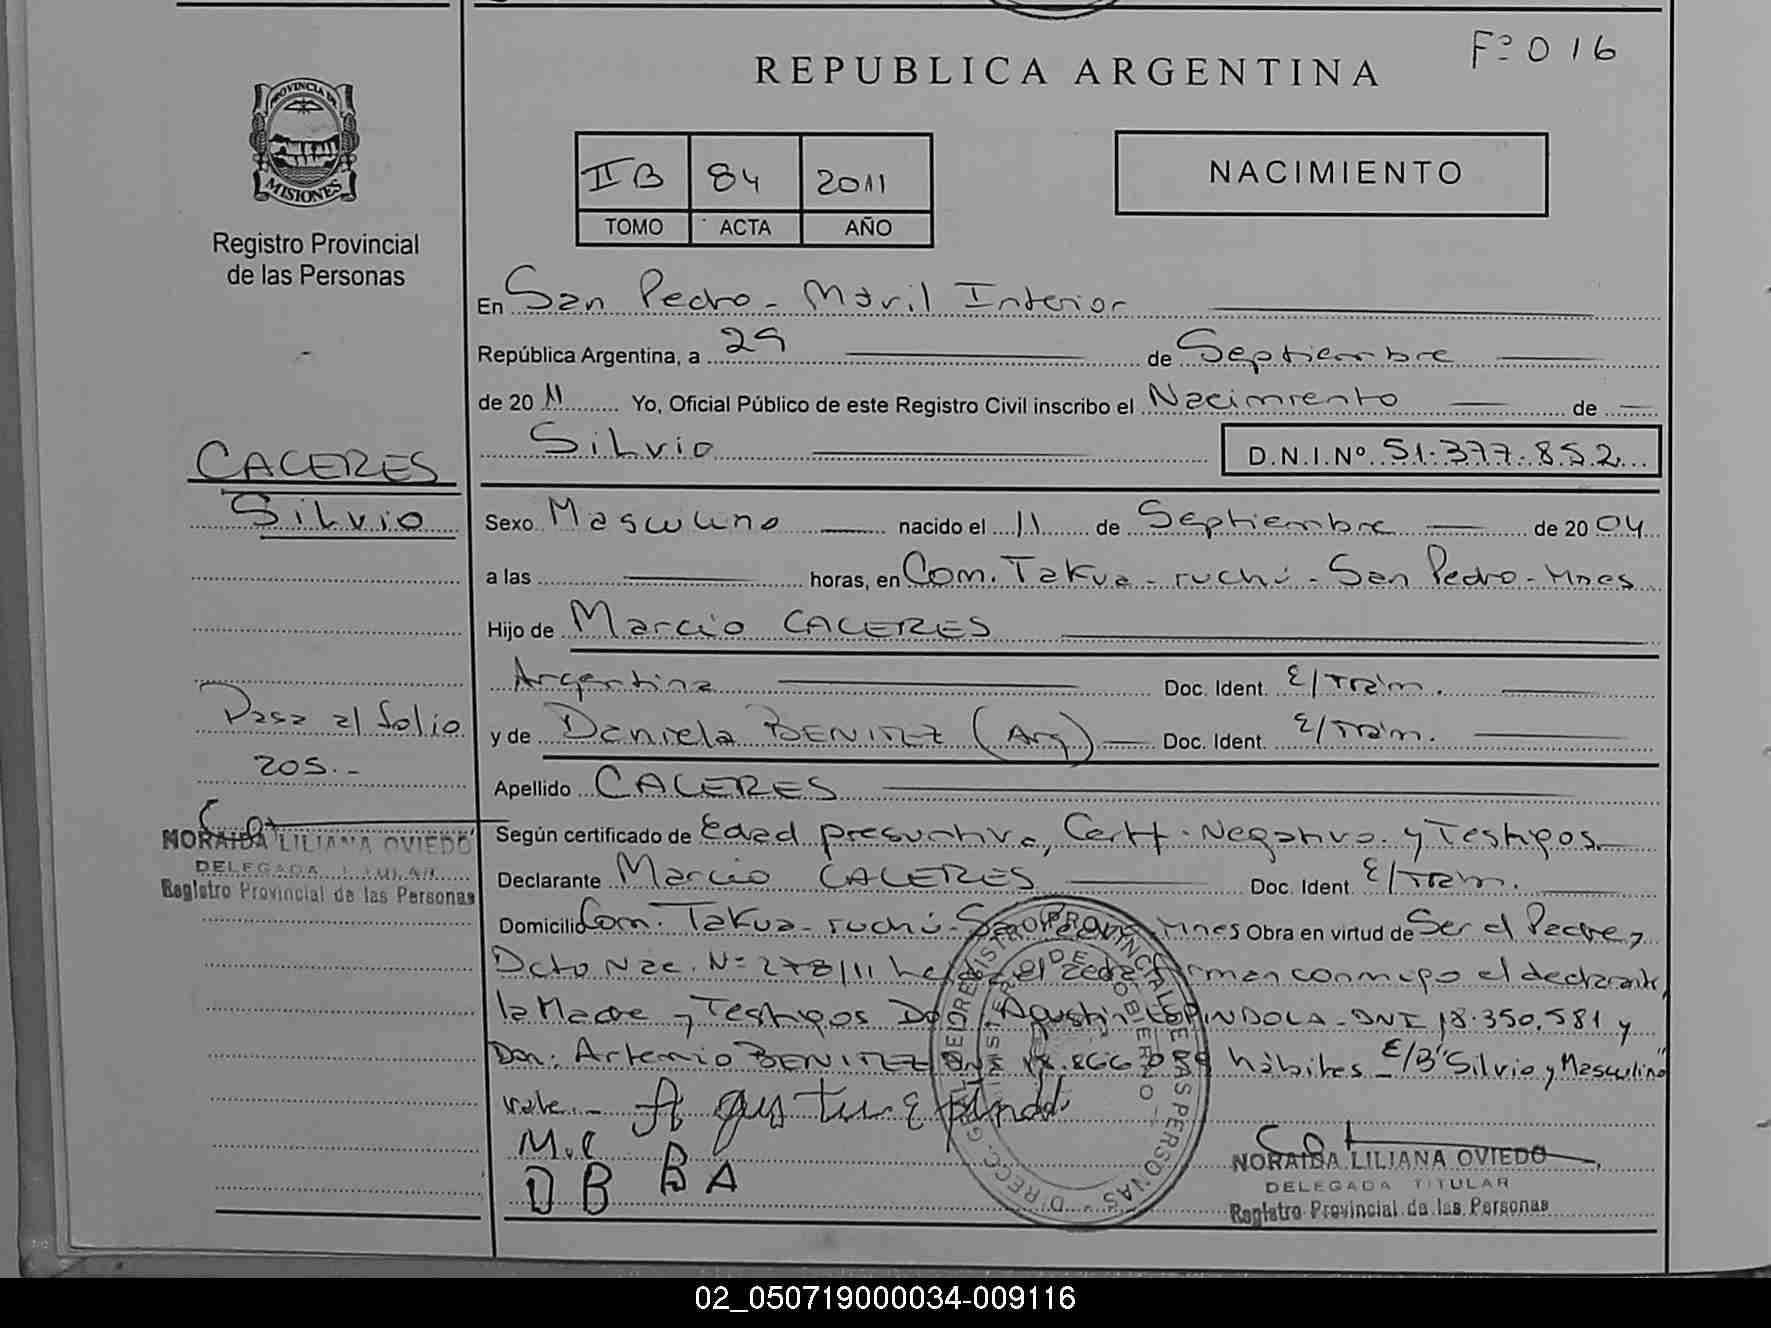 Fº 016
REPUBLICA ARGENTINA
PROVINCIA DE
MISIONES
Registro Provincial
de las Personas
II B 84 2011
TOMO ACTA AÑO
NACIMIENTO
En San Pedro - Móvil Interior
República Argentina, a 29 de Septiembre
de 20 11 Yo, Oficial Público de este Registro Civil inscribo el Nacimiento de
Silvio
D.N.I.Nº 51.377.852
CACERES
Silvio
Sexo Masculino nacido el 11 de Septiembre de 20 04
a las horas, en Com. Takua-ruchú - San Pedro - Mnes
Hijo de Marcio CACERES
Argentina Doc. Ident. E/Trám.
y de Daniela BENITEZ (Arg) Doc. Ident. E/Trám.
Apellido CACERES
Pasa al folio
205.-
NORAIDA LILIANA OVIEDO
DELEGADA TITULAR
Registro Provincial de las Personas
Según certificado de Edad presuntiva, Certf. Negativo y Testigos
Declarante Marcio CACERES Doc. Ident. E/Trám.
Domicilio Com. Takua-ruchú - San Mnes Obra en virtud de Ser el Padre,
Dcto Nac. Nº 278/11 el firman conmigo el declarante,
la Madre y Testigos Agustin ESPINDOLA - DNI 18.350.581 y
Don: Artemio BENITEZ hábiles - E/B "Silvio y Masculino"
vale.- Agustin Espindola
M.C
D B B A
NORAIDA LILIANA OVIEDO
DELEGADA TITULAR
Registro Provincial de las Personas
02_050719000034-009116